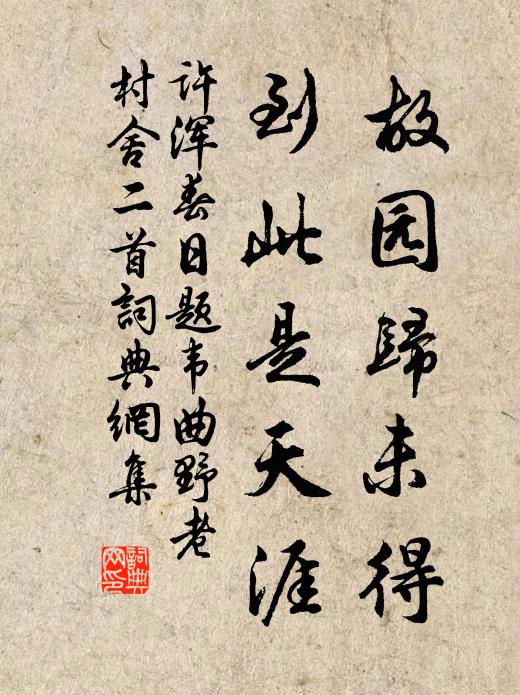 故园歸未得
到此是天涯
许浑春日题韦曲野老
村舍二首詞典網集
詞典
网印